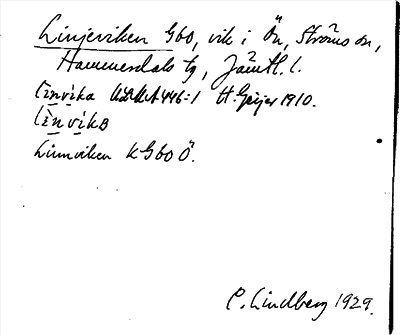 Linjeviken Gbo, vik i Ön, Ströms sn,
Hammerdals tg, Jämtl. l.
linvika ULMA 446:1 H. Geijer 1910.
linvika
Linnviken KGbo Ö.
C. Lindberg 1929.